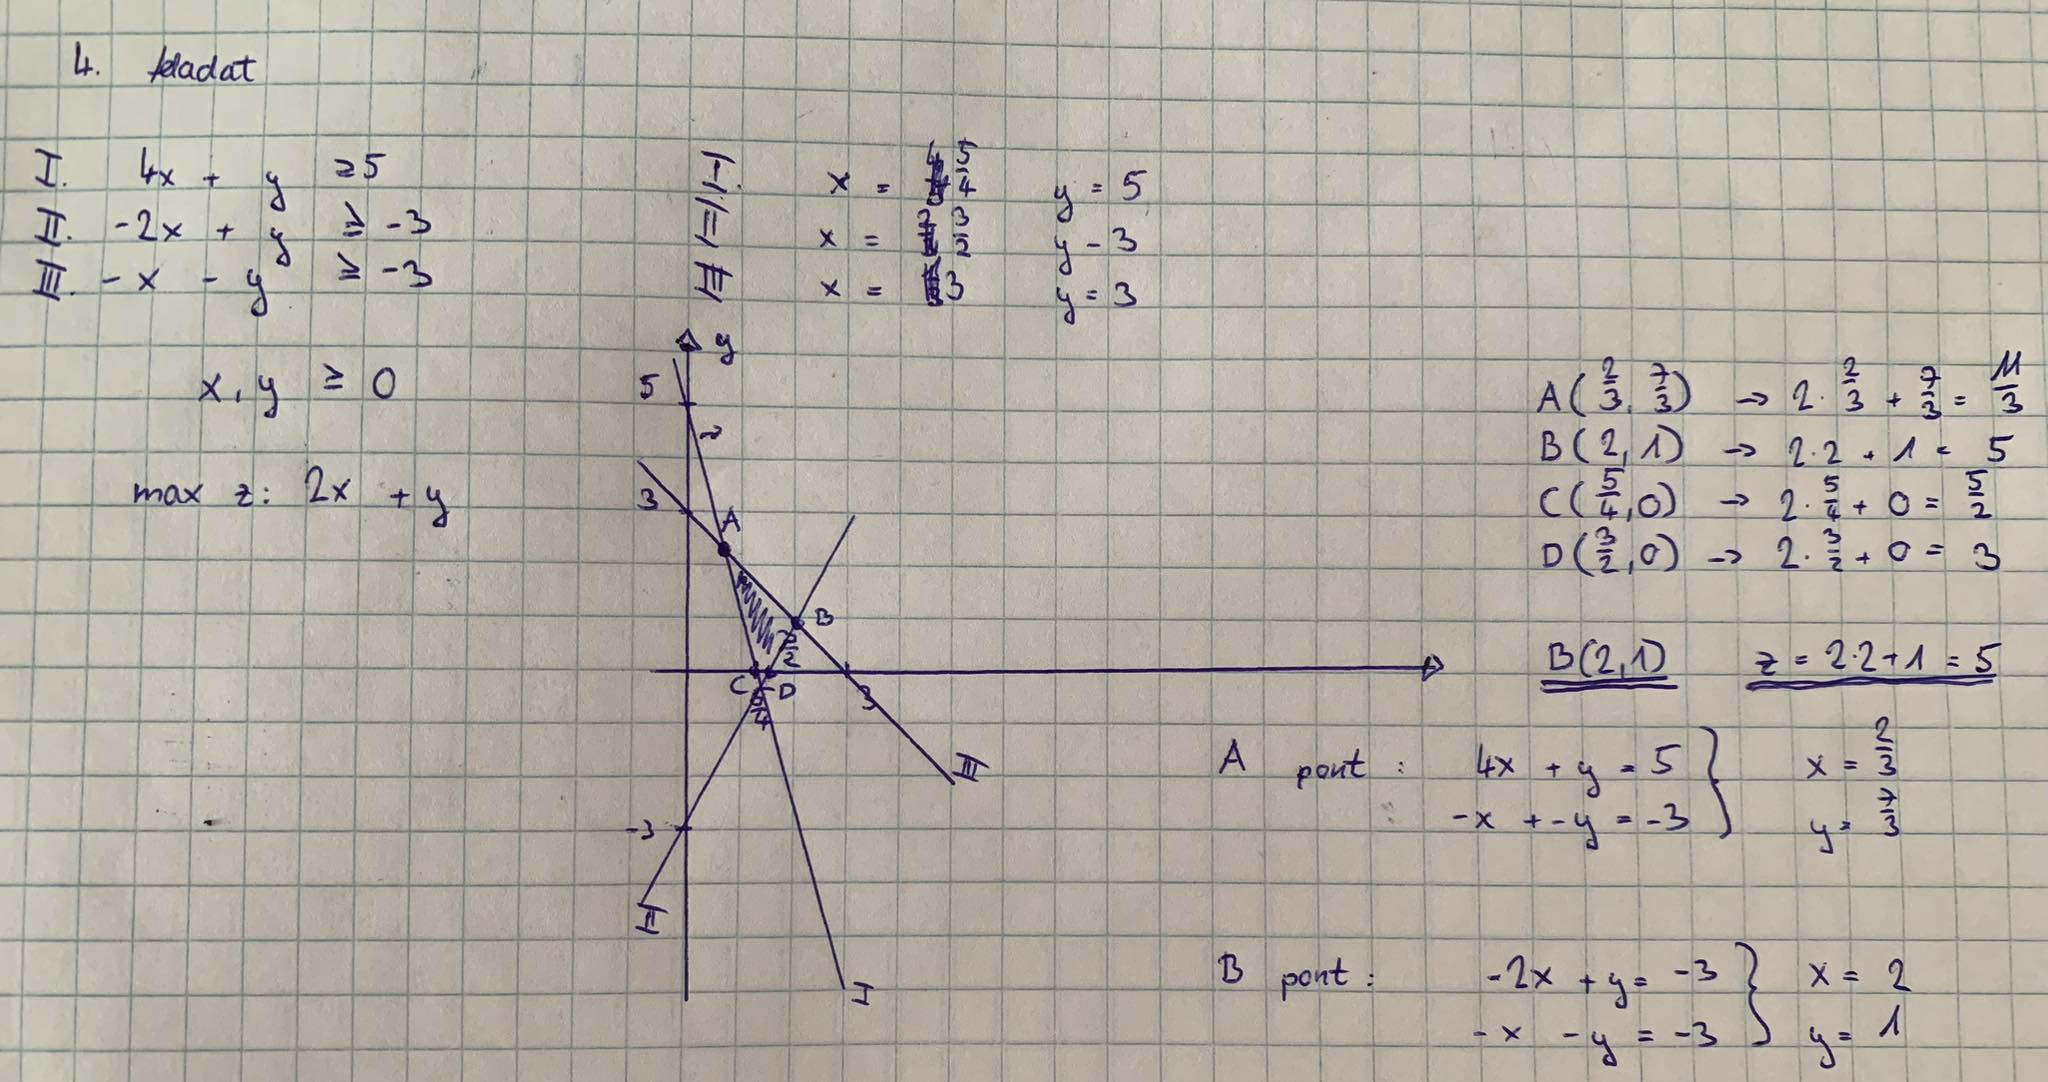 4. feladat
I. 4x + y ≥ 5
II. -2x + y ≥ -3
III. -x - y ≥ -3
I. x = 5/4 y = 5
II. x = 3/2 y - 3
III x = 3 y = 3
x, y ≥ 0
max z: 2x + y
y
5
3
A
B
3/2
C D
5/4
3
-3
III
II
I
A(2/3, 7/3) → 2·2/3 + 7/3 = 11/3
B(2, 1) → 2·2 + 1 = 5
C(5/4, 0) → 2·5/4 + 0 = 5/2
D(3/2, 0) → 2·3/2 + 0 = 3
B(2,1) z = 2·2+1 = 5
A pont: 4x + y = 5 } x = 2/3
-x + -y = -3 y = 7/3
B pont: -2x + y = -3 } x = 2
-x - y = -3 y = 1